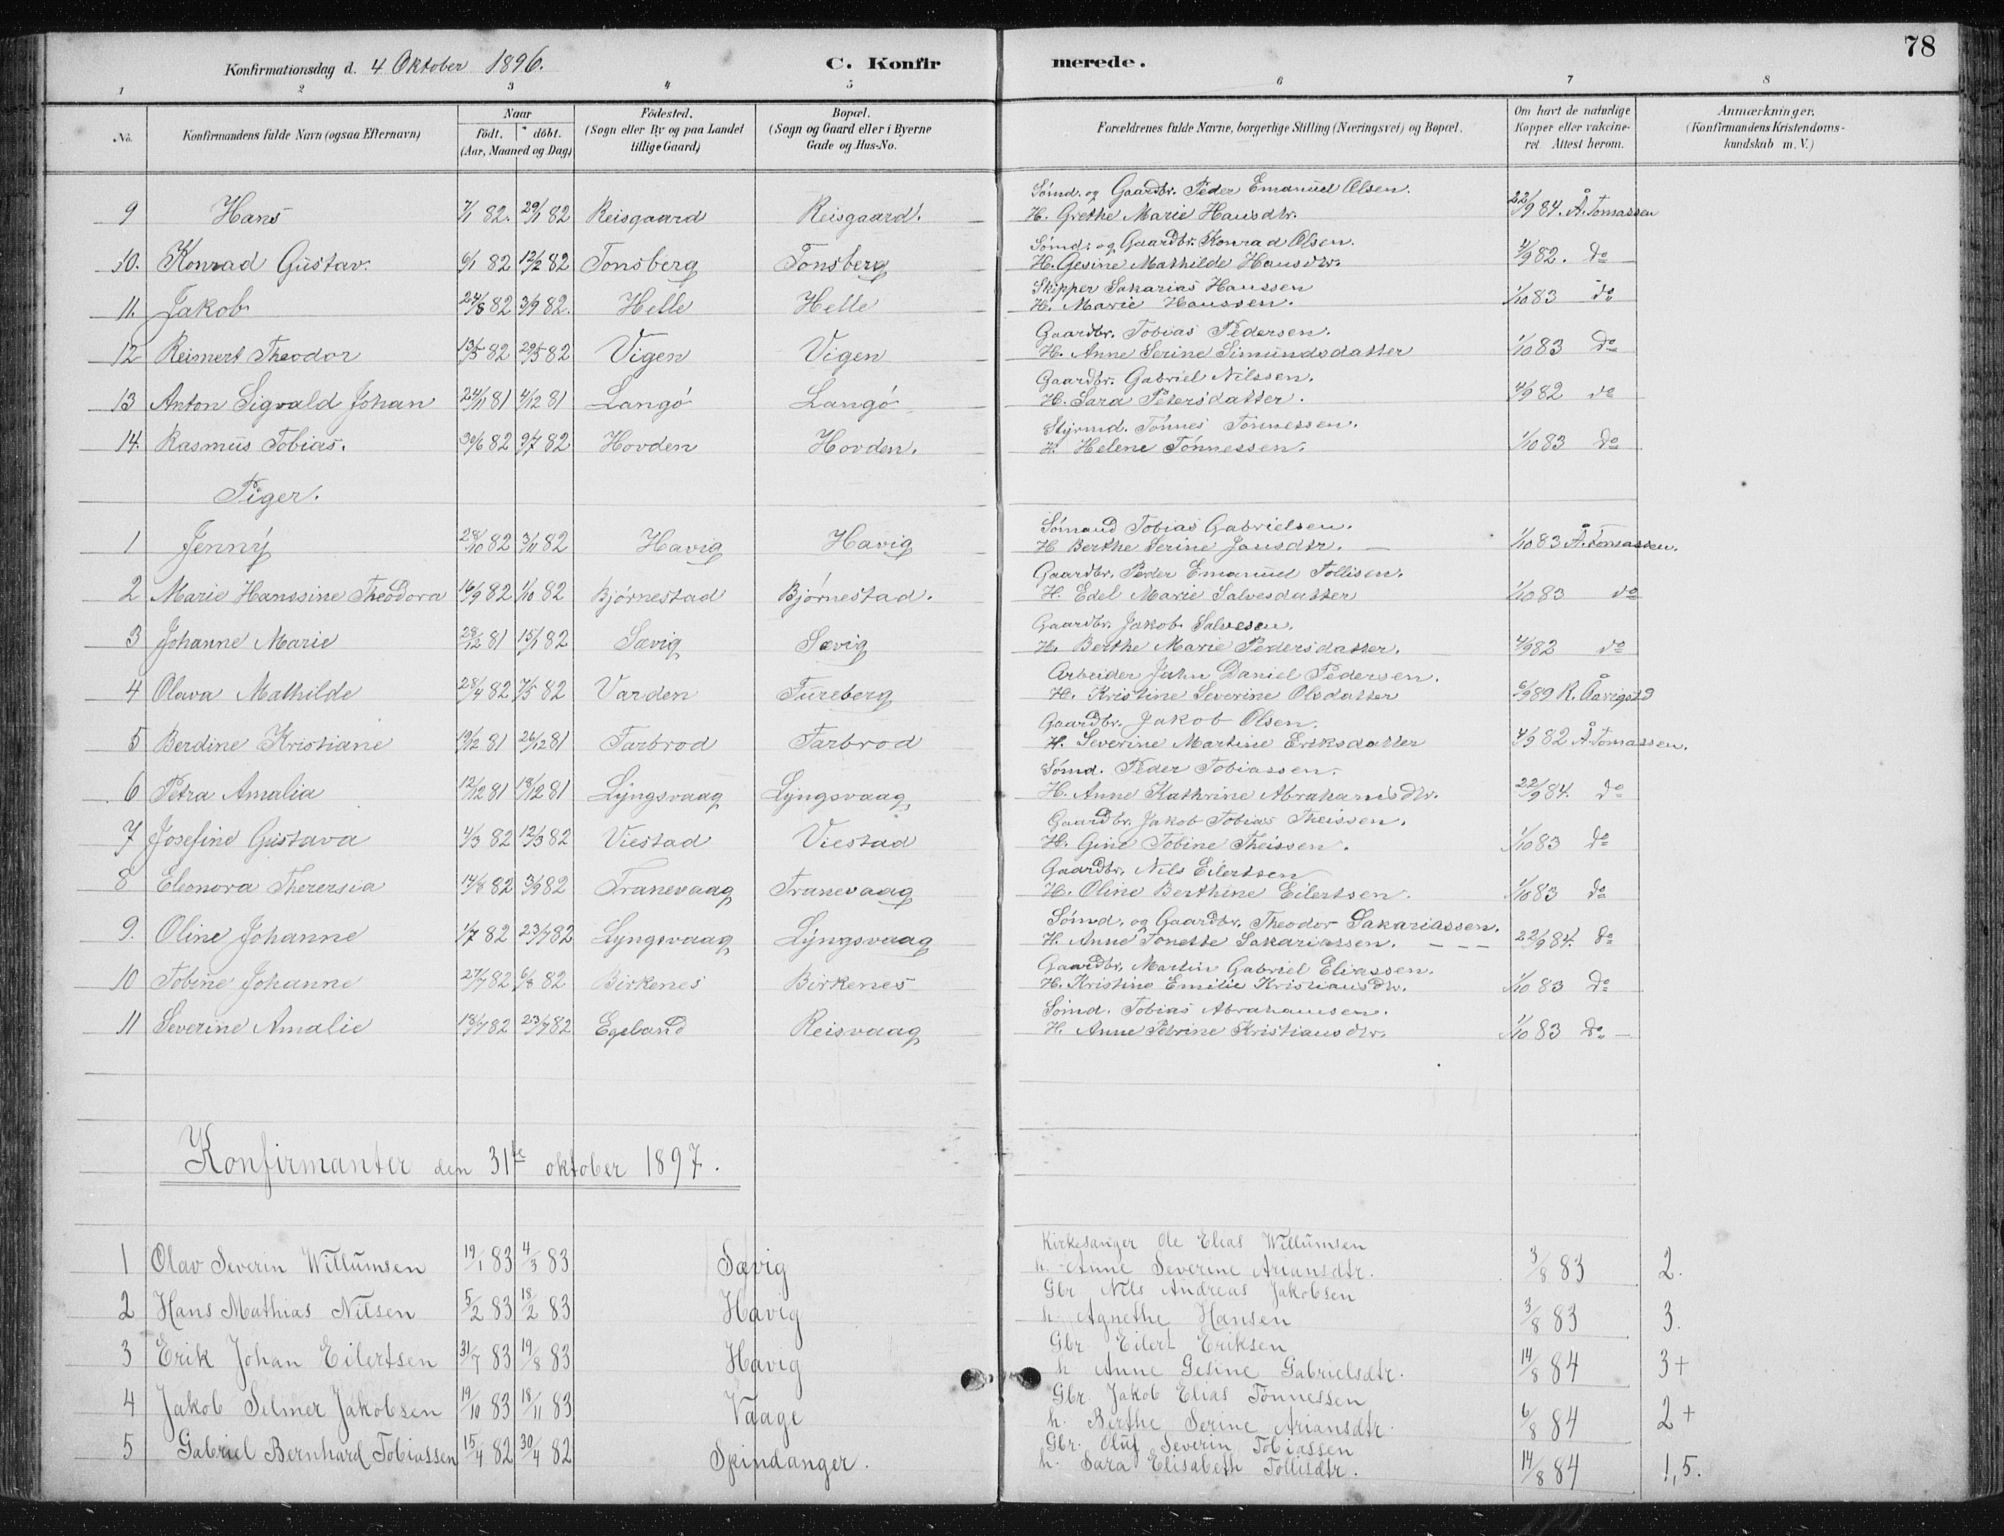 78
Konfirmationsdag d. 4 Oktober 1896. C. Konfirmerede.
1 2 3 4 5 6 7 8
No. Konfirmandens fulde Navn (ogsaa Efternavn) Naar født. døbt. (Aar, Maaned og Dag) Fødested. (Sogn eller By og paa Landet tillige Gaard) Bopæl. (Sogn og Gaard eller i Byerne Gade og Hus-No. Forældrenes fulde Navne, borgerlige Stilling (Næringsvei) og Bopæl. Om havt de naturlige Kopper eller vakcineret. Attest herom. Anmærkninger. (Konfirmandens Kristendomskundskab m. V.)
9 Hans 7/1 82. 29/1 82 Reisgaard Reisgaard. Sømd. og Gaardbr. Peder Emanuel Olsen. H. Grethe Marie Hansdtr. 22/9 84. Å. Tomassen
10. Konrad Gustav. 6/1 82 12/2 82 Tonsberg Tonsberg Sømd. og Gaardbr. Konrad Olsen. H. Gesine Mathilde Hansdtr. 4/9 82. do
11. Jakob 24/8 82 3/9 82. Helle Helle Skipper Sakarias Hanssen H. Marie Hanssen. 1/10 83 do
12 Reinert Theodor 13/5 82 29/5 82 Vigen Vigen Gaardbr. Tobias Pedersen. H. Anne Serine Simundsdatter 1/10 83 do
13 Anton Sigvald Johan 24/11 81 4/12 81 Langø Langø Gaardbr. Gabriel Nilssen. H. Sara Petersdatter. 4/9 82 do
14. Rasmus Tobias. 30/6 82 9/7 82 Hovden Hovden. Styrmd. Tønnes Tønnessen. H. Helene Tønnessen. 1/10 83 do
Piger.
1 Jenny 28/10 82 3/11 82 Havig Havig Sømand Tobias Gabrielsen. H Berthe Serine Jansdtr. 1/10 83 Å. Tomassen.
2 Marie Hanssine Theodora 14/9 82 1/10 82 Bjørnestad Bjørnestad. Gaardbr. Peder Emanuel Tollisen. H. Edel Marie Salvesdatter 1/10 83 do
3 Johanne Marie 28/12 81 15/1 82 Sævig Sævig Gaardbr. Jakob Salvesen. H. Berthe Marie Pedersdatter. 4/9 82 do
4 Olava Mathilde 28/4 82 7/5 82 Varden Tureberg Arbeider Jahn Daniel Pedersen. H. Kristine Severine Olsdatter 6/9 89 R. Aavigstd
5 Berdine Kristiane 19/12 81 26/12 81 Tarbrod Tarbrod Gaardbr. Jakob Olsen. H. Severine Martine Eriksdatter 4/9 82 Å Tomassen.
6 Petra Amalia 12/12 81 18/12 81 Lyngsvaag Lyngsvaag Sømd. Peder Tobiassen. H. Anne Kathrine Abrahamsdtr. 22/9 84. do
7 Josefine Gustava 4/3 82 12/3 82 Viestad Viestad Gaardbr. Jakob Tobias Theissen. H. Gine Tobine Theissen. 1/10 83 do
8 Eleonora Therersia 17/8 82 3/9 82 Tranevaag Tranevaag Gaardbr. Nils Eilertsen H. Oline Berthine Eilertsen. 1/10 83 do
9. Oline Johanne 1/7 82 23/7 82 Lyngsvaag Lyngsvaag Sømd. og Gaardbr. Theodor Sakariassen. H. Anne Tonette Sakariassen. 22/9 84. do
10 Tobine Johanne 27/7 82 6/8 82 Birkenes Birkenes Gaardbr. Martin Gabriel Eliassen. H. Kristine Emilie Kristiansdtr. 1/10 83 do
11 Severine Amalie 18/7 82 23/7 82 Egeland Reisvaag Sømd. Tobias Abrahamsen. H. Anne Petrine Kristiansdtr. 1/10 83 do
Konfirmanter den 31te oktober 1897.
1 Olav Severin Willumsen 19/1 83 4/3 83 Sævig Kirkesanger Ole Elias Willumsen h. Anne Severine Ariansdtr. 3/8 83 2.
2 Hans Mathias Nilsen 5/2 83 18/2 83 Havig Gbr Nils Andreas Jakobsen h. Agnethe Hansen 3/8 83 3.
3 Erik Johan Eilertsen 31/7 83 19/8 83 Havig Gbr Eilert Eriksen h Anne Gesine Gabrielsdtr. 14/8 84 3+
4 Jakob Selmer Jakobsen 19/10 83 18/11 83 Vaage Gbr. Jakob Elias Tønnessen h. Berthe Serine Ariansdtr. 6/8 84 2+
5 Gabriel Bernhard Tobiassen 15/4 82 30/4 82 Spindanger. Gbr. Oluf Severin Tobiassen h. Sara Elisabeth Tollisdtr. 14/8 84 1,5.